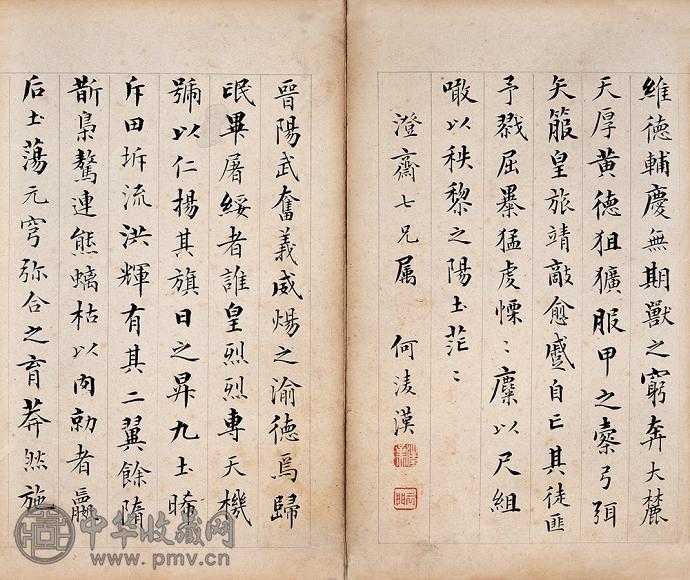 晉陽武奮義威煬之渝德焉歸
氓畢屠綏者誰皇烈烈專天機
號以仁揚其旗日之昇九土晞
斥田圻流洪輝有其二翼餘隋
斮梟驁連熊螭枯以肉勍者羸
后土蕩元穹弥合之育莽然施
維德輔慶無期獸之窮奔大麓
天厚黃德狙獷服甲之櫜弓弭
矢箙皇旅靖敵愈蹙自亡其徒匪
予戮屈暴猛虔慄〻縻以尺組
噉以秩黎之陽土茫〻
澄齋七兄属 何淩漢
中华收藏网
www.pmv.cn